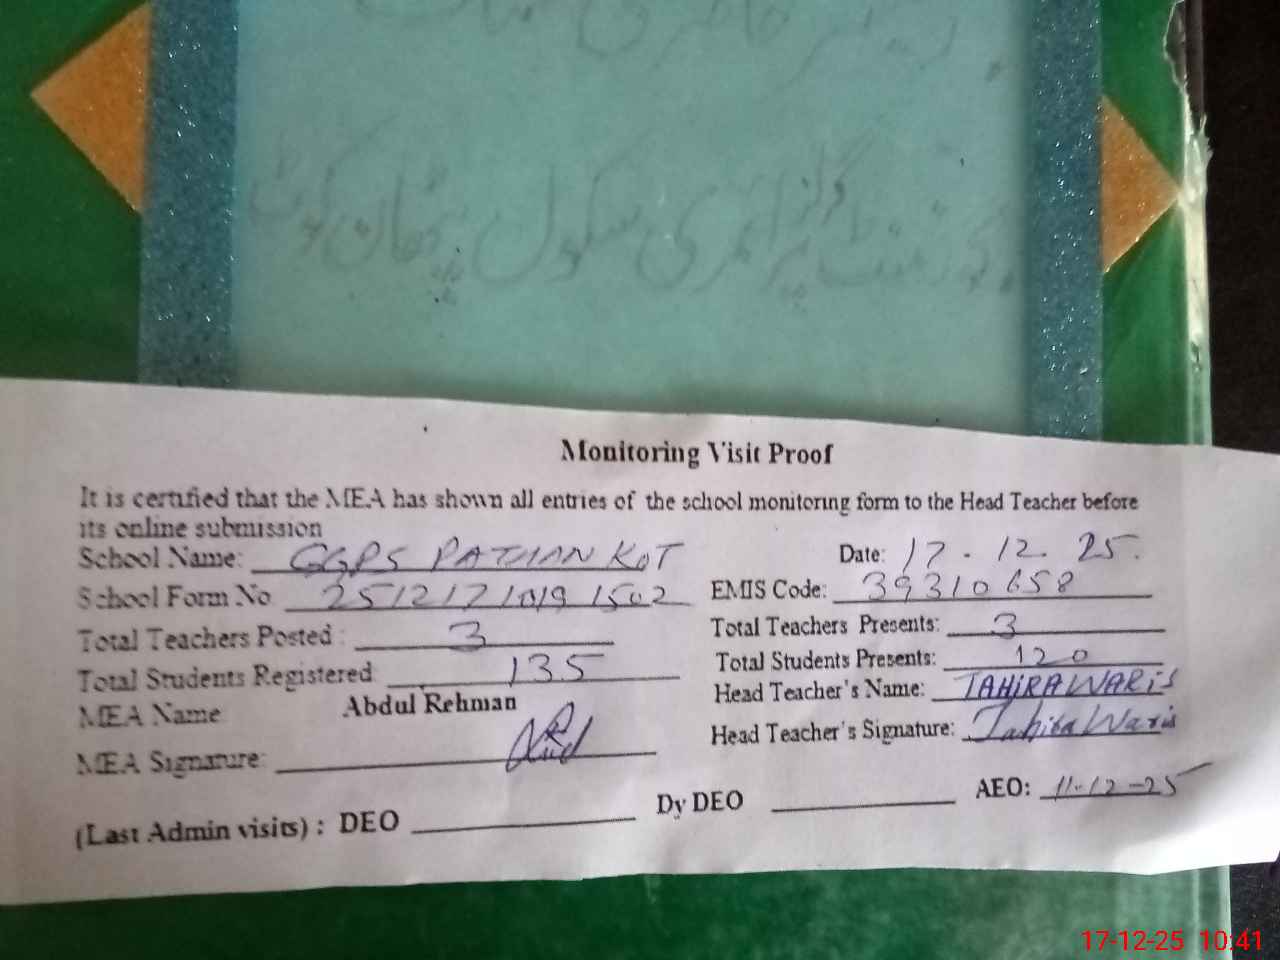 گورنمنٹ گرلز پرائمری سکول پٹھان کوٹ
Monitoring Visit Proof
It is certified that the MEA has shown all entries of the school monitoring form to the Head Teacher before
its online submission
School Name: GGPS PATHAN KOT Date: 17-12-25.
School Form No 251217 1502 EMIS Code: 39310658
Total Teachers Posted : 3 Total Teachers Presents: 3
Total Students Registered 135 Total Students Presents: 120
MEA Name Abdul Rehman Head Teacher's Name: TAHIRA WARIS
MEA Signature: Head Teacher's Signature: Tahira Waris
(Last Admin visits) : DEO Dy DEO AEO: 11-12-25
17-12-25 10:41